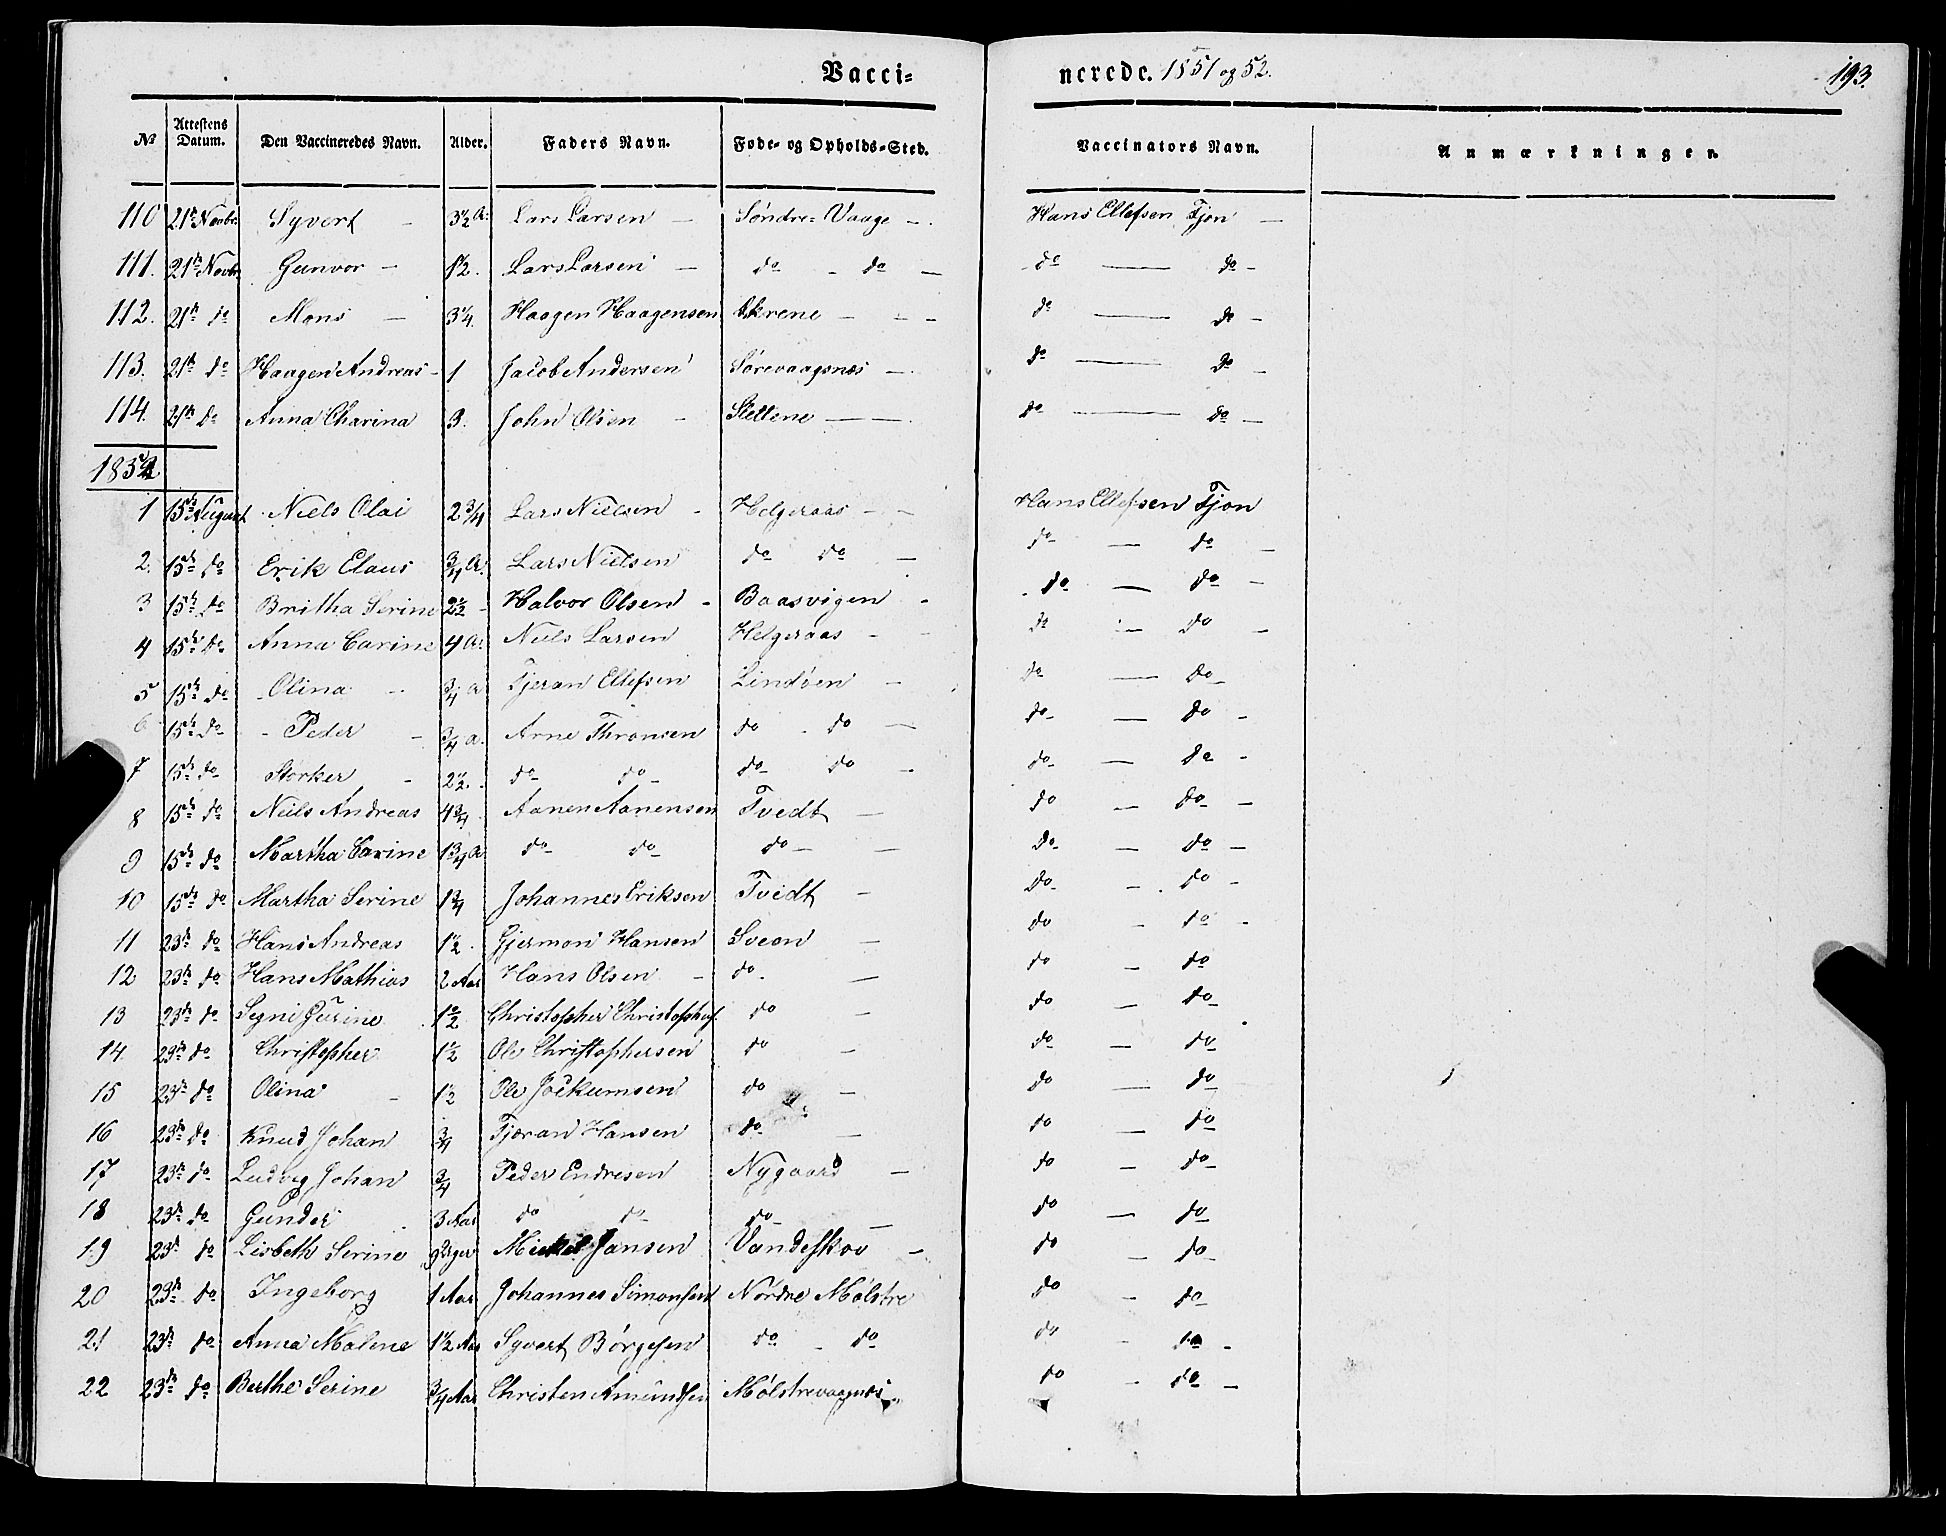 Vacci- nerede. 1851 og 52. 193.
No Attestens Datum. Den Vaccineredes Navn. Alder. Faders Navn. Føde- og Opholds-Sted. Vaccinators Navn. Anmærkninger.
110 21de Novbr. Syvert - 3½ A. Lars Larsen - Søndre Vaage - Hans Ellefsen Tjøn -
111. 21de Novbr Gunvor - 1½. Lars Larsen - do - do - do - do -
112. 21de do Mons - 3¼. Haagen Haagensen Skrene - - - do - do -
113. 21de do Haagen Andreas - 1 Jacob Andersen Sørevaagsnæs - do - do -
114. 21de do Anna Charina 3. John Olsen - Slettene - do - do -
1852
1 15de August Niels Olai 2¾ Lars Nielsen - Helgeraas - - Hans Ellefsen Tjøn
2. 15de do Erik Claus ¾ A. Lars Nielsen do do - do - do -
3 15de do Britha Serine 2½ - Halvor Olsen - Baasvigen - do - do -
4 15de do Anna Carine 4 A. Niels Larsen Helgeraas - - do - do -
5 15de do Olina - ¾ A Tjeran Ellefsen Lindøen - do - do -
6 15de do - Peder - ¾ A. Arne Thronsen do - do - do - do -
7 15de do Storker - 2½. do - do - do - do - do - do -
8 15de do Niels Andreas 4¾ Aanen Aanensen Tvedt - do - do -
9 15de do Martha Carine 1¾ A do - do - do - - do - do -
10 15de do Martha Serine 1¾ Johannes Eriksen Tvedt - do - do -
11 23de do Hans Andreas 1½. Gjermon Hansen Sveen - do - do -
12 23de do Hans Mathias 2 Aar Hans Olsen - do - - do - do
13 23de do Segni Gurine 1½ Christopher Christophs. do - do - do -
14. 23de do Christopher 1½ Ole Christophersen do - do - do
15 23de do Olina - 1½ Ole Jockumsen do - do - do
16 23de do Knud Johan ¾ Tjøran Hansen do - do - do
17 23de do Ludvig Johan ¾ Peder Endresen Nygaard - do - do -
18 23de do Gunder 3 Aar do do do - do - do
19 23de do Lisbeth Serine Michel Jansen Vandeskov - do - do -
20 23de do Ingeborg 1 Aar Johannes Simonsen Nordre Mølstre do - do -
21 23de do Anna Malene 1½ Aar Syvert Børgesen do - do do - do -
22 23de do Berthe Serine ¾ Aar Christen Amundsen Mølstrevaagnæs do - do -